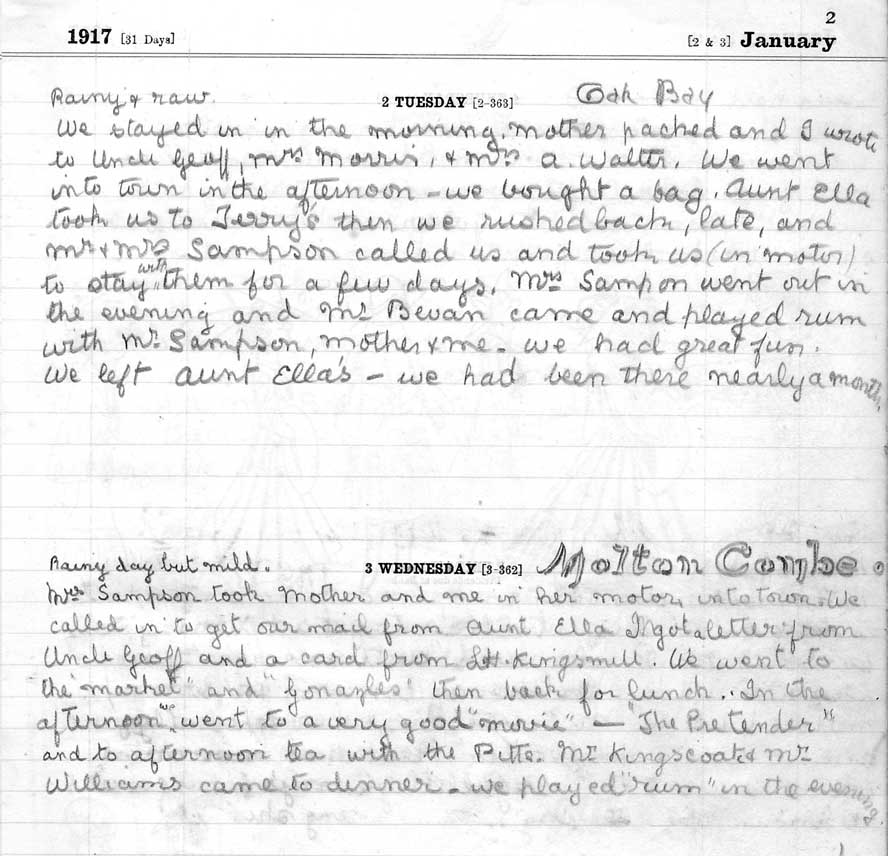 2
1917 [31 Days] [2 & 3] January
Rainy & raw. 2 TUESDAY [2-363] Oak Bay
We stayed in in the morning, mother packed and I wrote
to Uncle Geoff, Mrs Morris, & Mrs A. Walter. We went
into town in the afternoon - we bought a bag. Aunt Ella
took us to Terry's then we rushed back, late, and
Mr & Mrs Sampson called us and took us (in motor)
to stay with them for a few days. Mrs Sampon went out in
the evening and Mr Bevan came and played rum
with Mr Sampson, mother & me - we had great fun.
We left Aunt Ella's - we had been there nearly a month.
Rainy day but mild. 3 WEDNESDAY [3-362] Molton Combe.
Mrs Sampson took Mother and me in her motor, into town. We
called in to get our mail from Aunt Ella I got a letter from
Uncle Geoff and a card from Kingsmill. We went to
the "market" and "Gonazles" then back for lunch. In the
afternoon we went to a very good "movie" - "The Pretender"
and to afternoon tea with the Pitts. Mr Kingscoat & Mr
Williams came to dinner - we played "rum" in the evening.